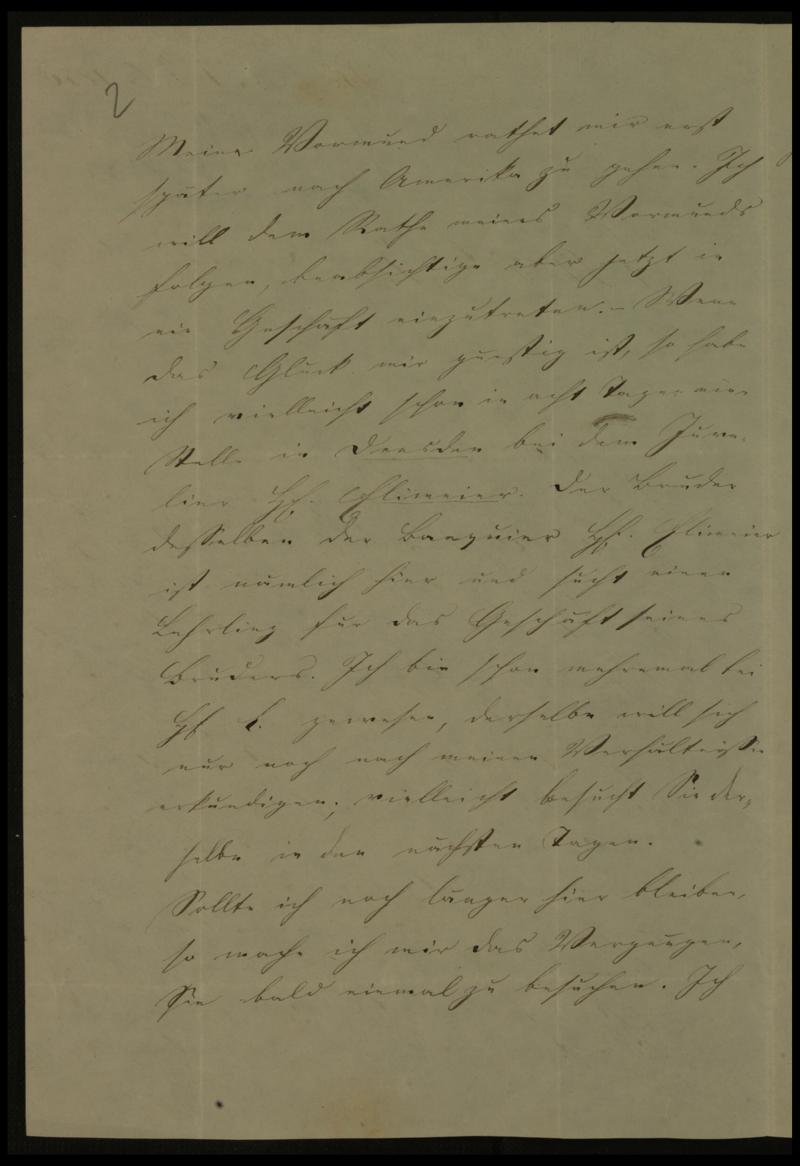 2
Meine Vormund rathet mir erst
später nach Amerika zu gehen. Ich
will dem Rathe meines Vormunds
folgen, beabsichtige aber jetzt in
ein Geschäft einzutreten. – Wenn
das Glück mir günstig ist, so habe
ich vielleicht schon in acht Tagen eine
Stelle in Dresden bei dem Juwe-
lier H. Elimeier. Der Bruder
desselben der Banquier H. Elimeier
ist nämlich hier und sucht einen
Lehrling für das Geschäft seines
Bruders. Ich bin schon mehremal bei
H. E. gewesen, derselbe will sich
nur noch nach meinen Verhältnissen
erkundigen; vielleicht besucht Sie der-
selbe in den nächsten Tagen.
Sollte ich noch länger hier bleiben,
so mache ich mir das Vergnügen,
Sie bald einmal zu besuchen. Ich